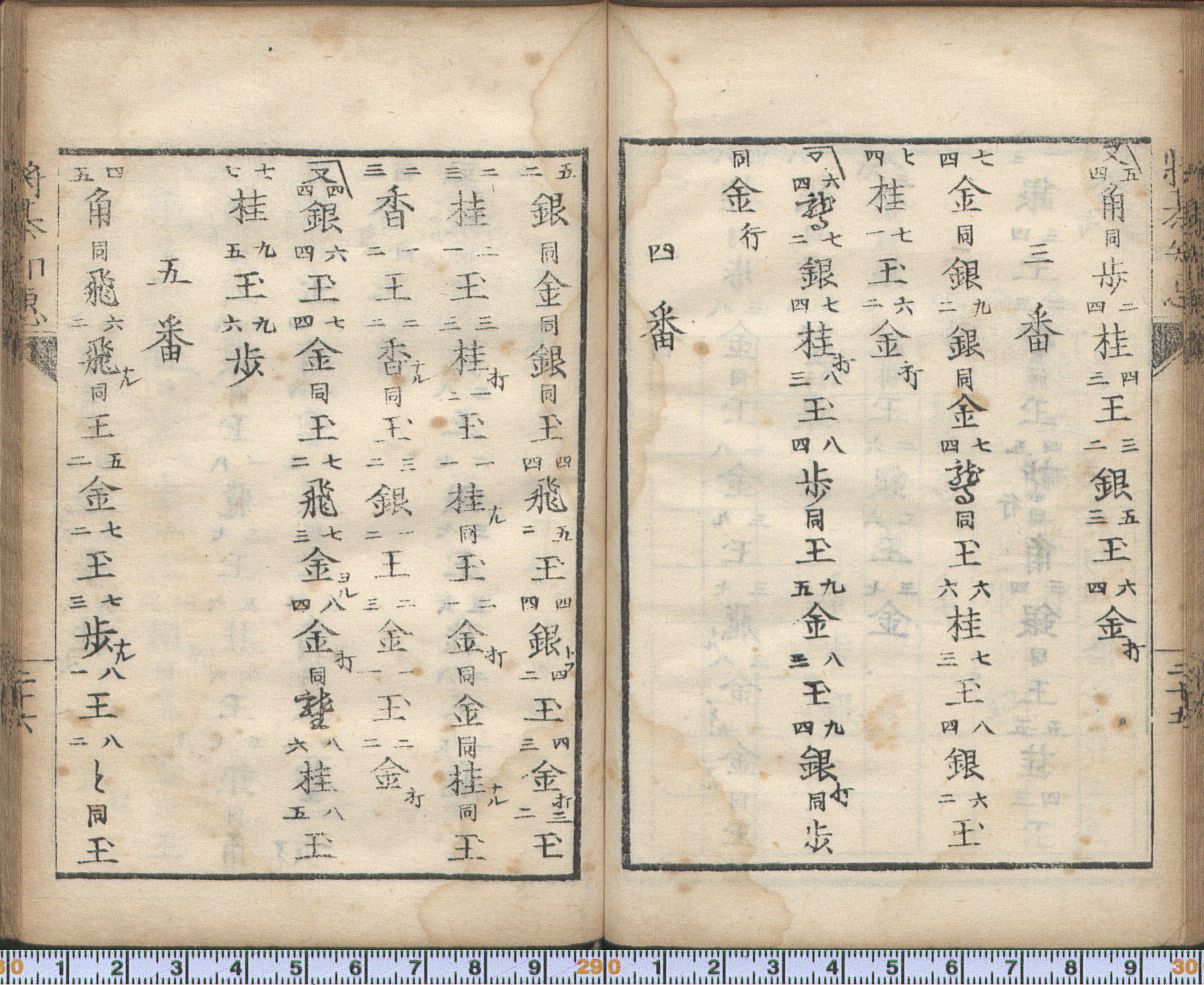 又五四角同歩二四桂四三王三二銀五三王六四金打
三番
七四金同銀九二銀同金七四龍馬同王六六桂七三王八四銀六二王
七四桂七一王六二金打
又六四龍馬七二銀七四桂打八三王八四歩同王九五金八三王九四銀打同歩
同金行
四番
二十五
五二銀同金同銀同王四四飛五二王四四銀四二王四三金打三二王
二三桂二一王三三桂打一二王一一桂ナル同王二一金打同金同桂ナル同王
二三香一二王二二香ナル同王三二銀一二王二三金一一王二二金打
又四四銀六四王七四金同王七二飛七三金ヨル八四金打同龍王八六桂八五王
七七桂九五王九六歩
五番
四五角同飛六二飛ナル同王五二金七二王七三歩ナル八一王八二と同王
二十六
30 1 2 3 4 5 6 7 8 9 29 0 1 2 3 4 5 6 7 8 9 30